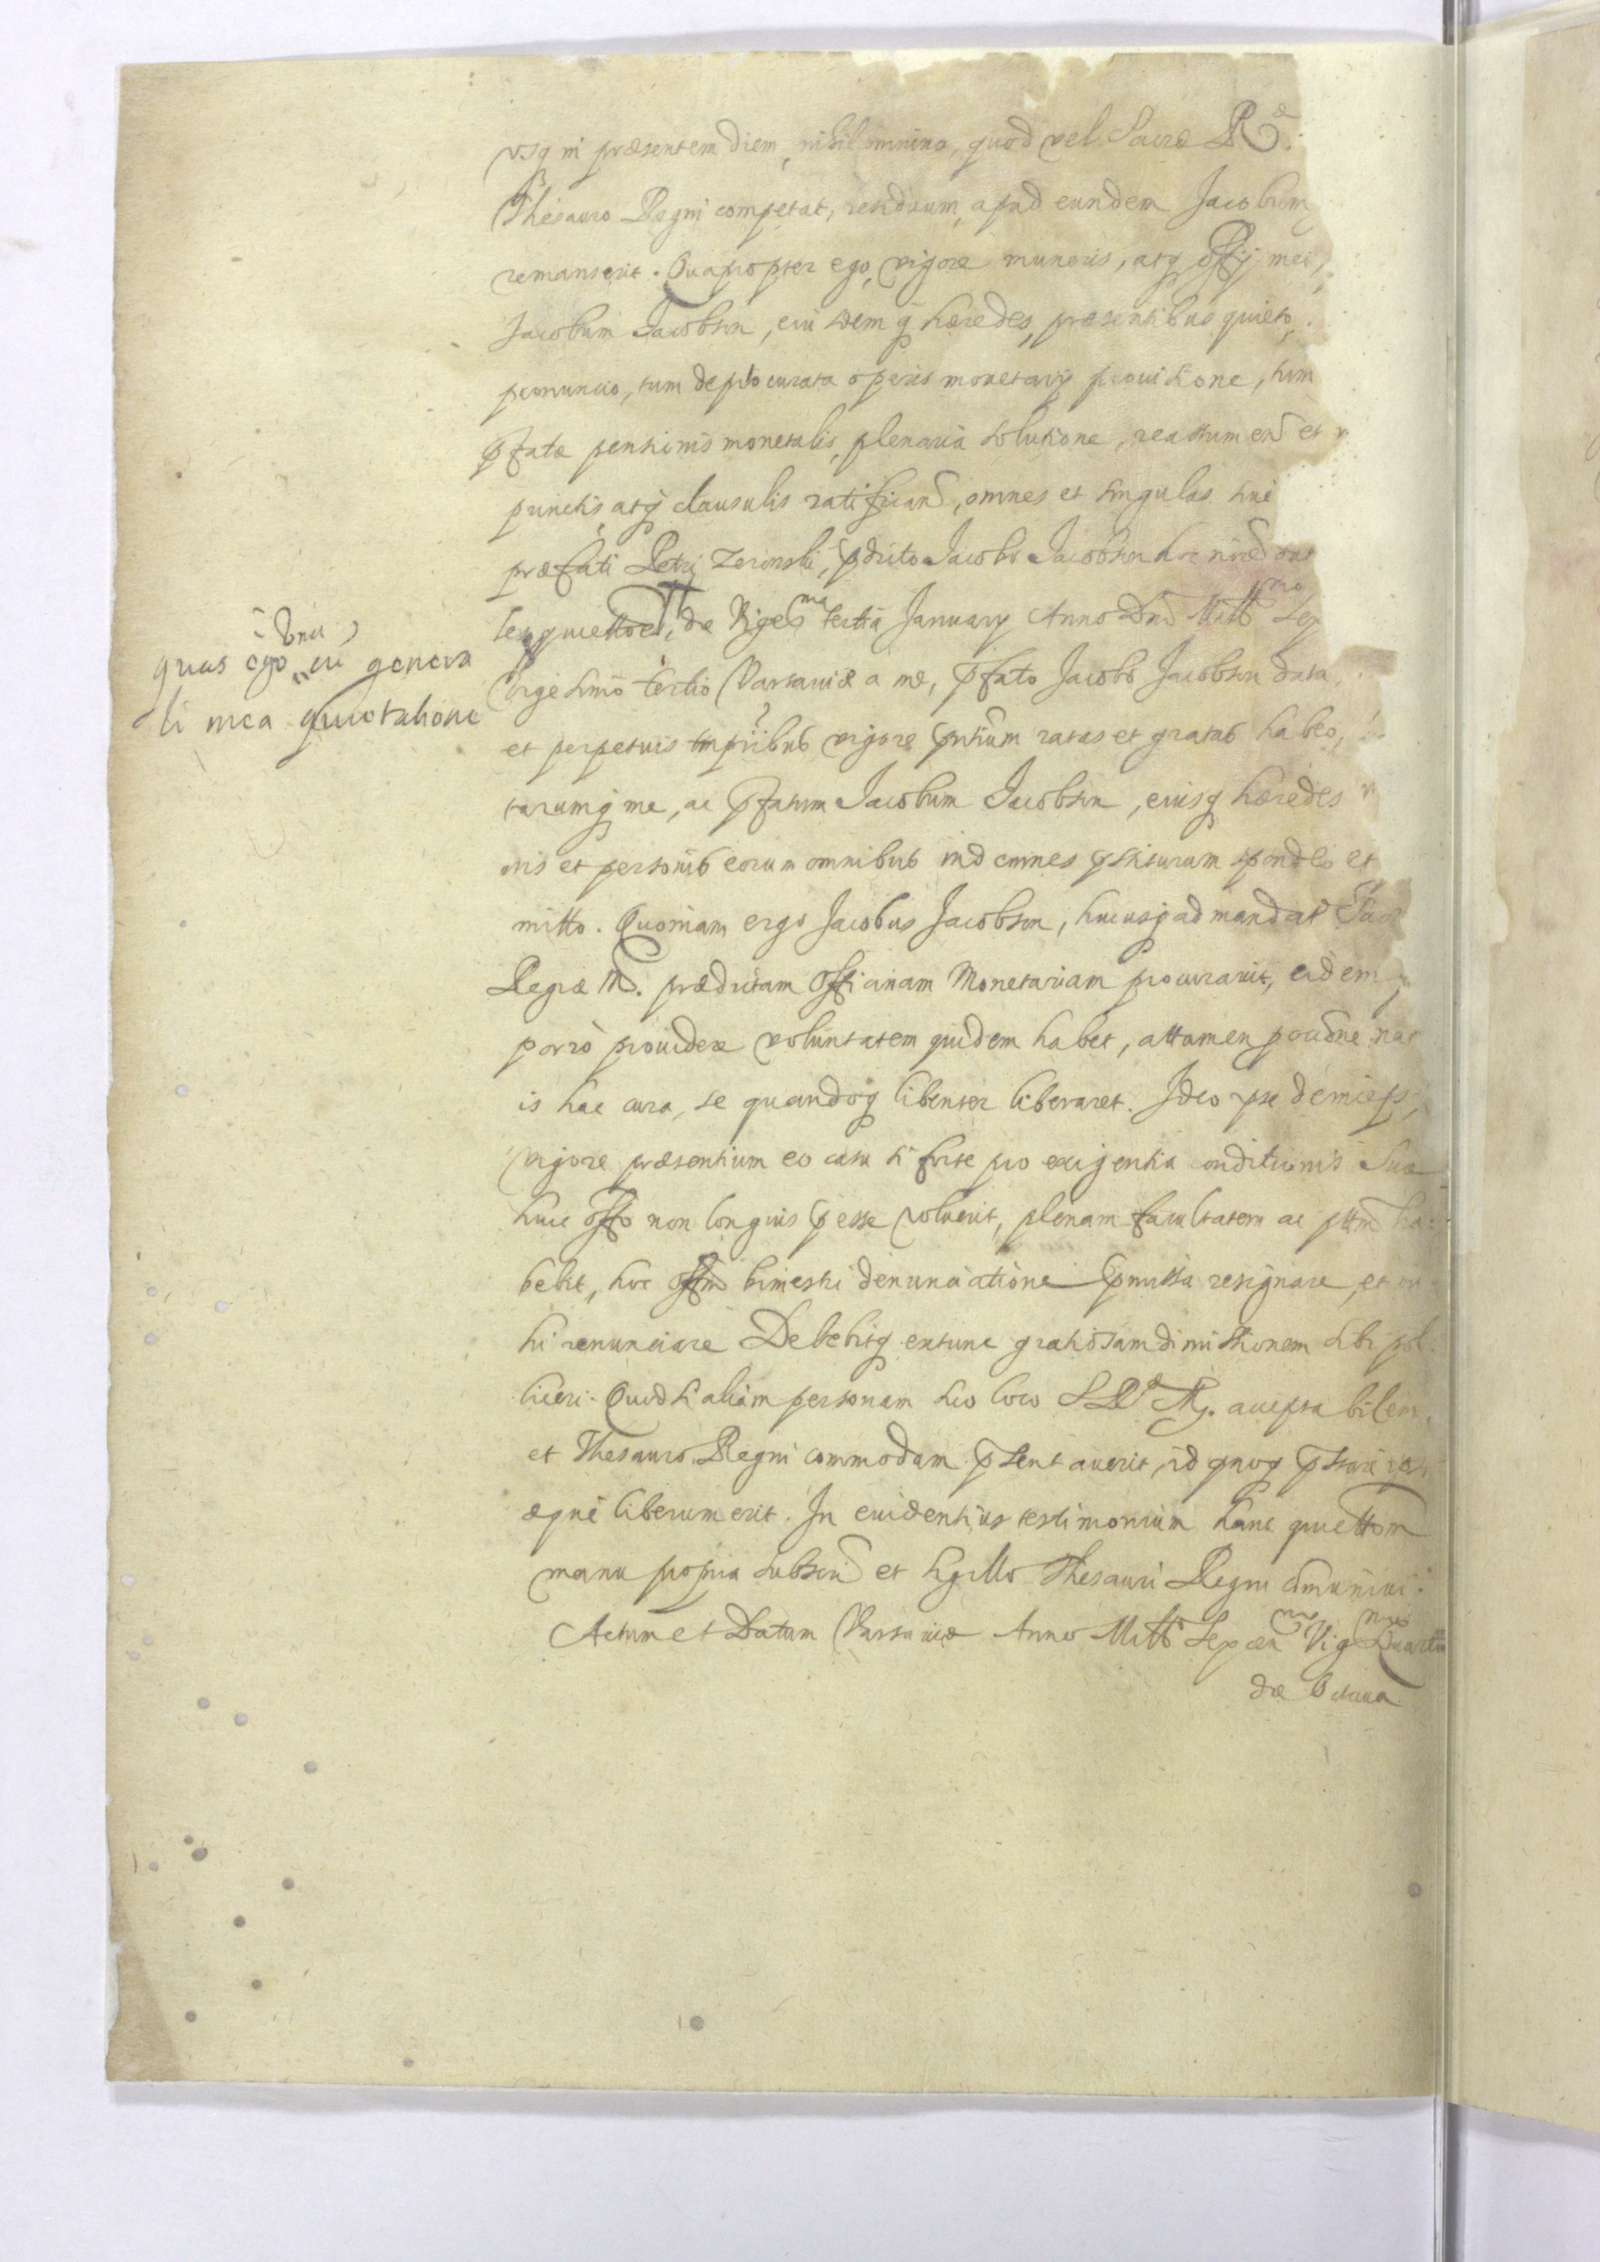 usq in præsentem diem, nihil omnino, quod vel Sacræ R
Thesauro Regni competat, residuum, apud eundem Jacobum
remanserit. Quapropter ego, vigore muneris, atq offij mei,
Jacobum Jacobson, eiusdemq hæredes, præsentibus quieto,
pronuncio, tum de procurata operis monetarij provisione, tum
pfatæ pensionis monetalis, plenaria solutione, reassumen et
punctis, atq clausulis ratifican, omnes et singulas sive
præfati Petri Zeronski, pdicto Jacobo Jacobson hoc
quiettoe, die Viges ma tertia January Anno Dni Mill mo Sex
quas ego una cu genera
li mea quietatione
Vigesimo tertio Varsaviæ a me, pfato Jacobo Jacobson data,
et perpetuis vigore pntium ratas et gratas habeo,
earumq me, ac pfatum Jacobum Jacobson, eiusq hæredes
nis et personis eorum omnibus indemnes pstiturum spondeo et
mitto. Quoniam ergo Jacobus Jacobson, hucusq ad mandat Sacr
Regiæ M. prædictam Officinam Monetariam procuravit, eidem
porrò providere voluntatem quidem habet, attamen
is hac cura, se quandoq libenter liberaret. Ideo
vigore præsentium eo casu si forte pro exigentia conditionis suæ
huic offo non longius pesse voluerit, plenam facultatem ac ptm ha-
bebit, hoc offm bimestri denunciatione pmissa resignare, et
renunciare Debebitq extunc gratiosam dimissionem sibi pol-
liceri. Quod si aliam personam suo loco S R M. acceptabilem,
et Thesauro Regni commodam psentaverit, id quoq
æque liberum erit. In evidentius testimonium hanc quiettom
manu propria subscri et sigillo Thesauri Regni comunivi.
Actum et Datum Varsaviæ Anno Mill Sexcen Viges mo Quarto
die Octava